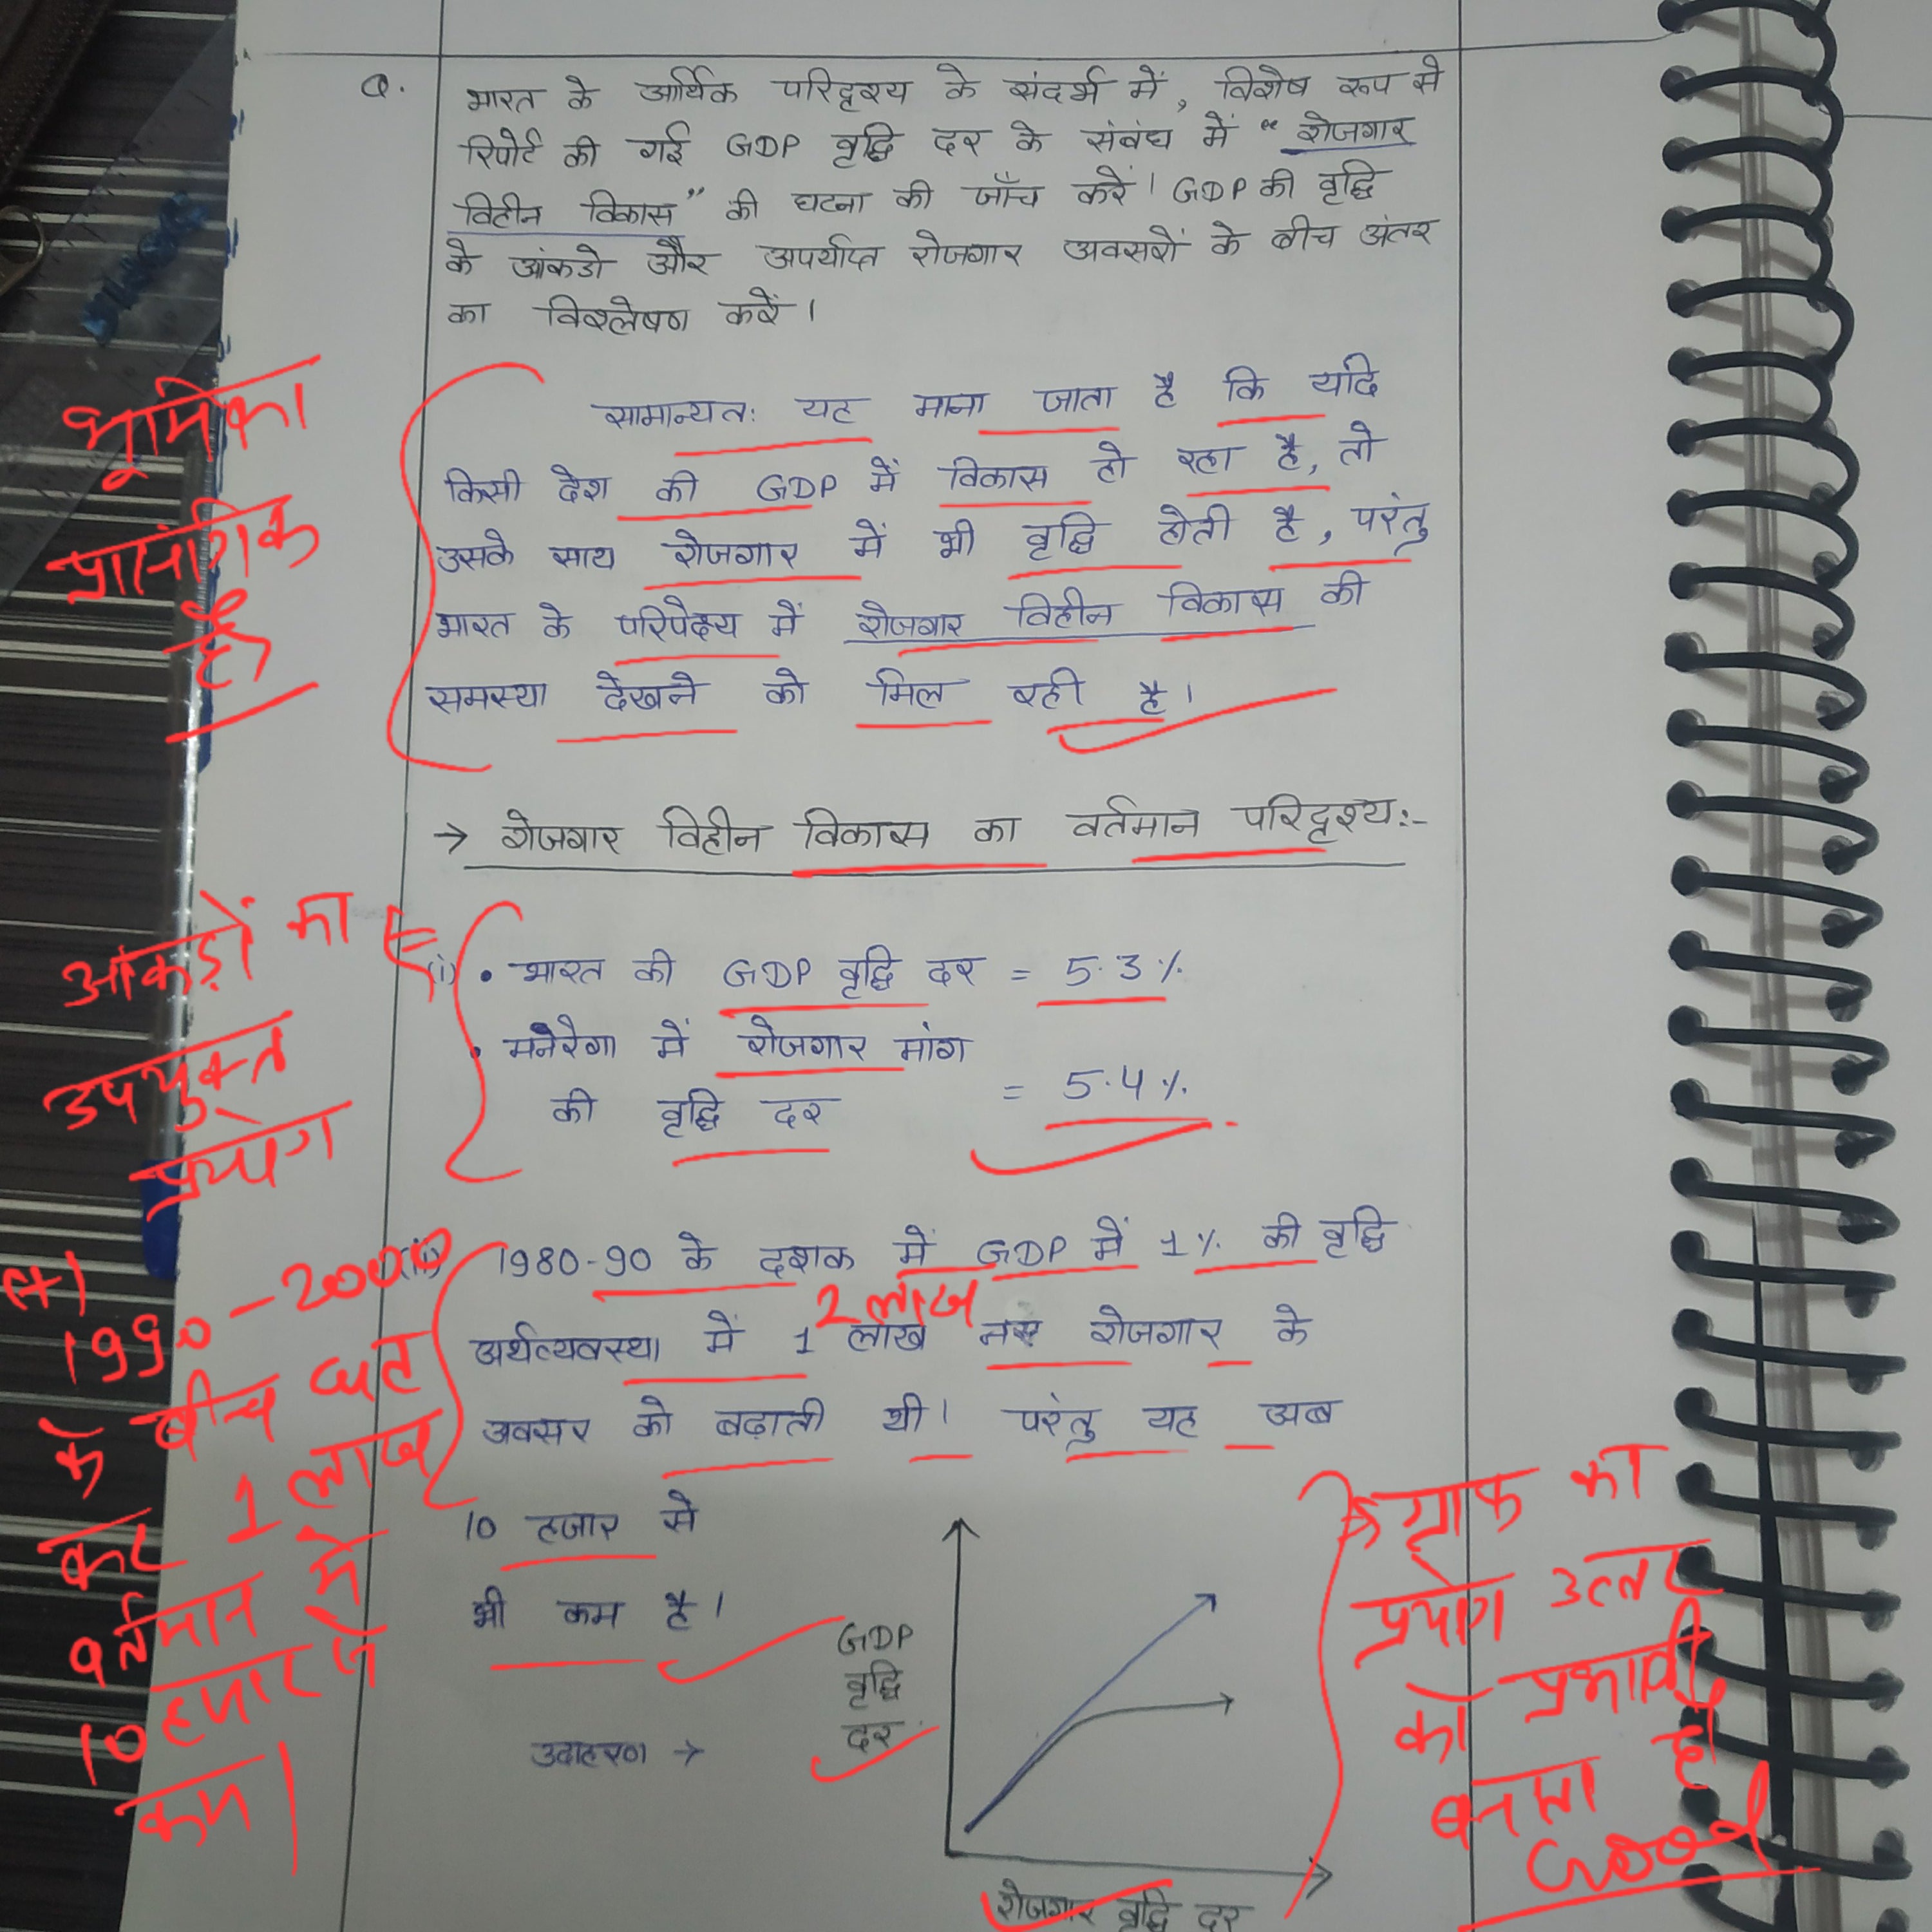 Q. भारत के आर्थिक परिदृश्य के संदर्भ में, विशेष रूप से
रिपोर्ट की गई GDP वृद्धि दर के संबंध में "रोजगार
विहीन विकास" की घटना की जाँच करें। GDP की वृद्धि
के आंकडो और अपर्याप्त रोजगार अवसरों के बीच अंतर
का विश्लेषण करें।
भूमिका
प्रासंगिक
है
सामान्यतः यह माना जाता है कि यदि
किसी देश की GDP में विकास हो रहा है, तो
उसके साथ रोजगार में भी वृद्धि होती है, परंतु
भारत के परिपेक्ष्य में रोजगार विहीन विकास की
समस्या देखने को मिल रही है।
→ रोजगार विहीन विकास का वर्तमान परिदृश्य:-
आंकड़ों का
उपयुक्त
प्रयोग
(i) • भारत की GDP वृद्धि दर = 5.3%
• मनेरेगा में रोजगार मांग
की वृद्धि दर = 5.4%
(ii) 1980-90 के दशक में GDP में 1% की वृद्धि
2 लाख
अर्थव्यवस्था में 1 लाख नए रोजगार के
अवसर को बढ़ाती थी। परंतु यह अब
10 हजार से
भी कम है।
1990-2000
के बीच घट
कर 1 लाख
वर्तमान में
10 हजार से
कम।
उदाहरण →
GDP
वृद्धि
दर
रोजगार वृद्धि दर
ग्राफ का
प्रयोग उत्तर
को प्रभावी
बनाता है
Good